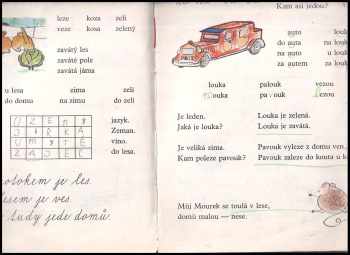 leze koza zelí
veze kosa zelený
zavátý les
zaváté pole
zavátá jáma
u lesa zima zelí
do domu na zimu do zelí
jazyk.
Zeman.
víno.
do lesa.
potokem je les.
lesem je ves.
tudy jede domů.
Kam asi jedou?
auto louk
do auta na louk
na auto u louk
za autem za louk
louka palouk vezou
louka pa.ouk .ezou
Je leden. Louka je zelená.
Jaká je louka? Louka je zavátá.
Je veliká zima. Pavouk vyleze z domu ven.
Kam poleze pavouk? Pavouk zaleze do kouta u k
Můj Mourek se toulá v lese,
domů malou — nese.